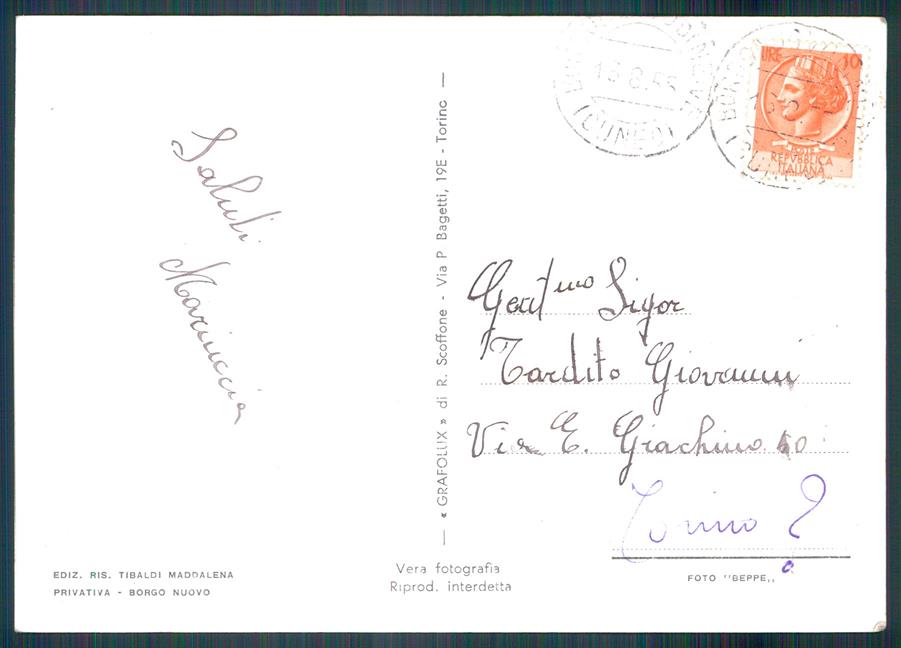 Saluti
Mariuccia
« GRAFOLUX » di R. Scoffone - Via P. Bagetti, 19E - Torino
(CUNEO)
LIRE 10
POSTE
REPVBBLICA
ITALIANA
Gent.mo Sigor
Tardito Giovanni
Via E. Giachino 40
Torino
EDIZ. RIS. TIBALDI MADDALENA
PRIVATIVA - BORGO NUOVO
Vera fotografia
Riprod. interdetta
FOTO "BEPPE,,